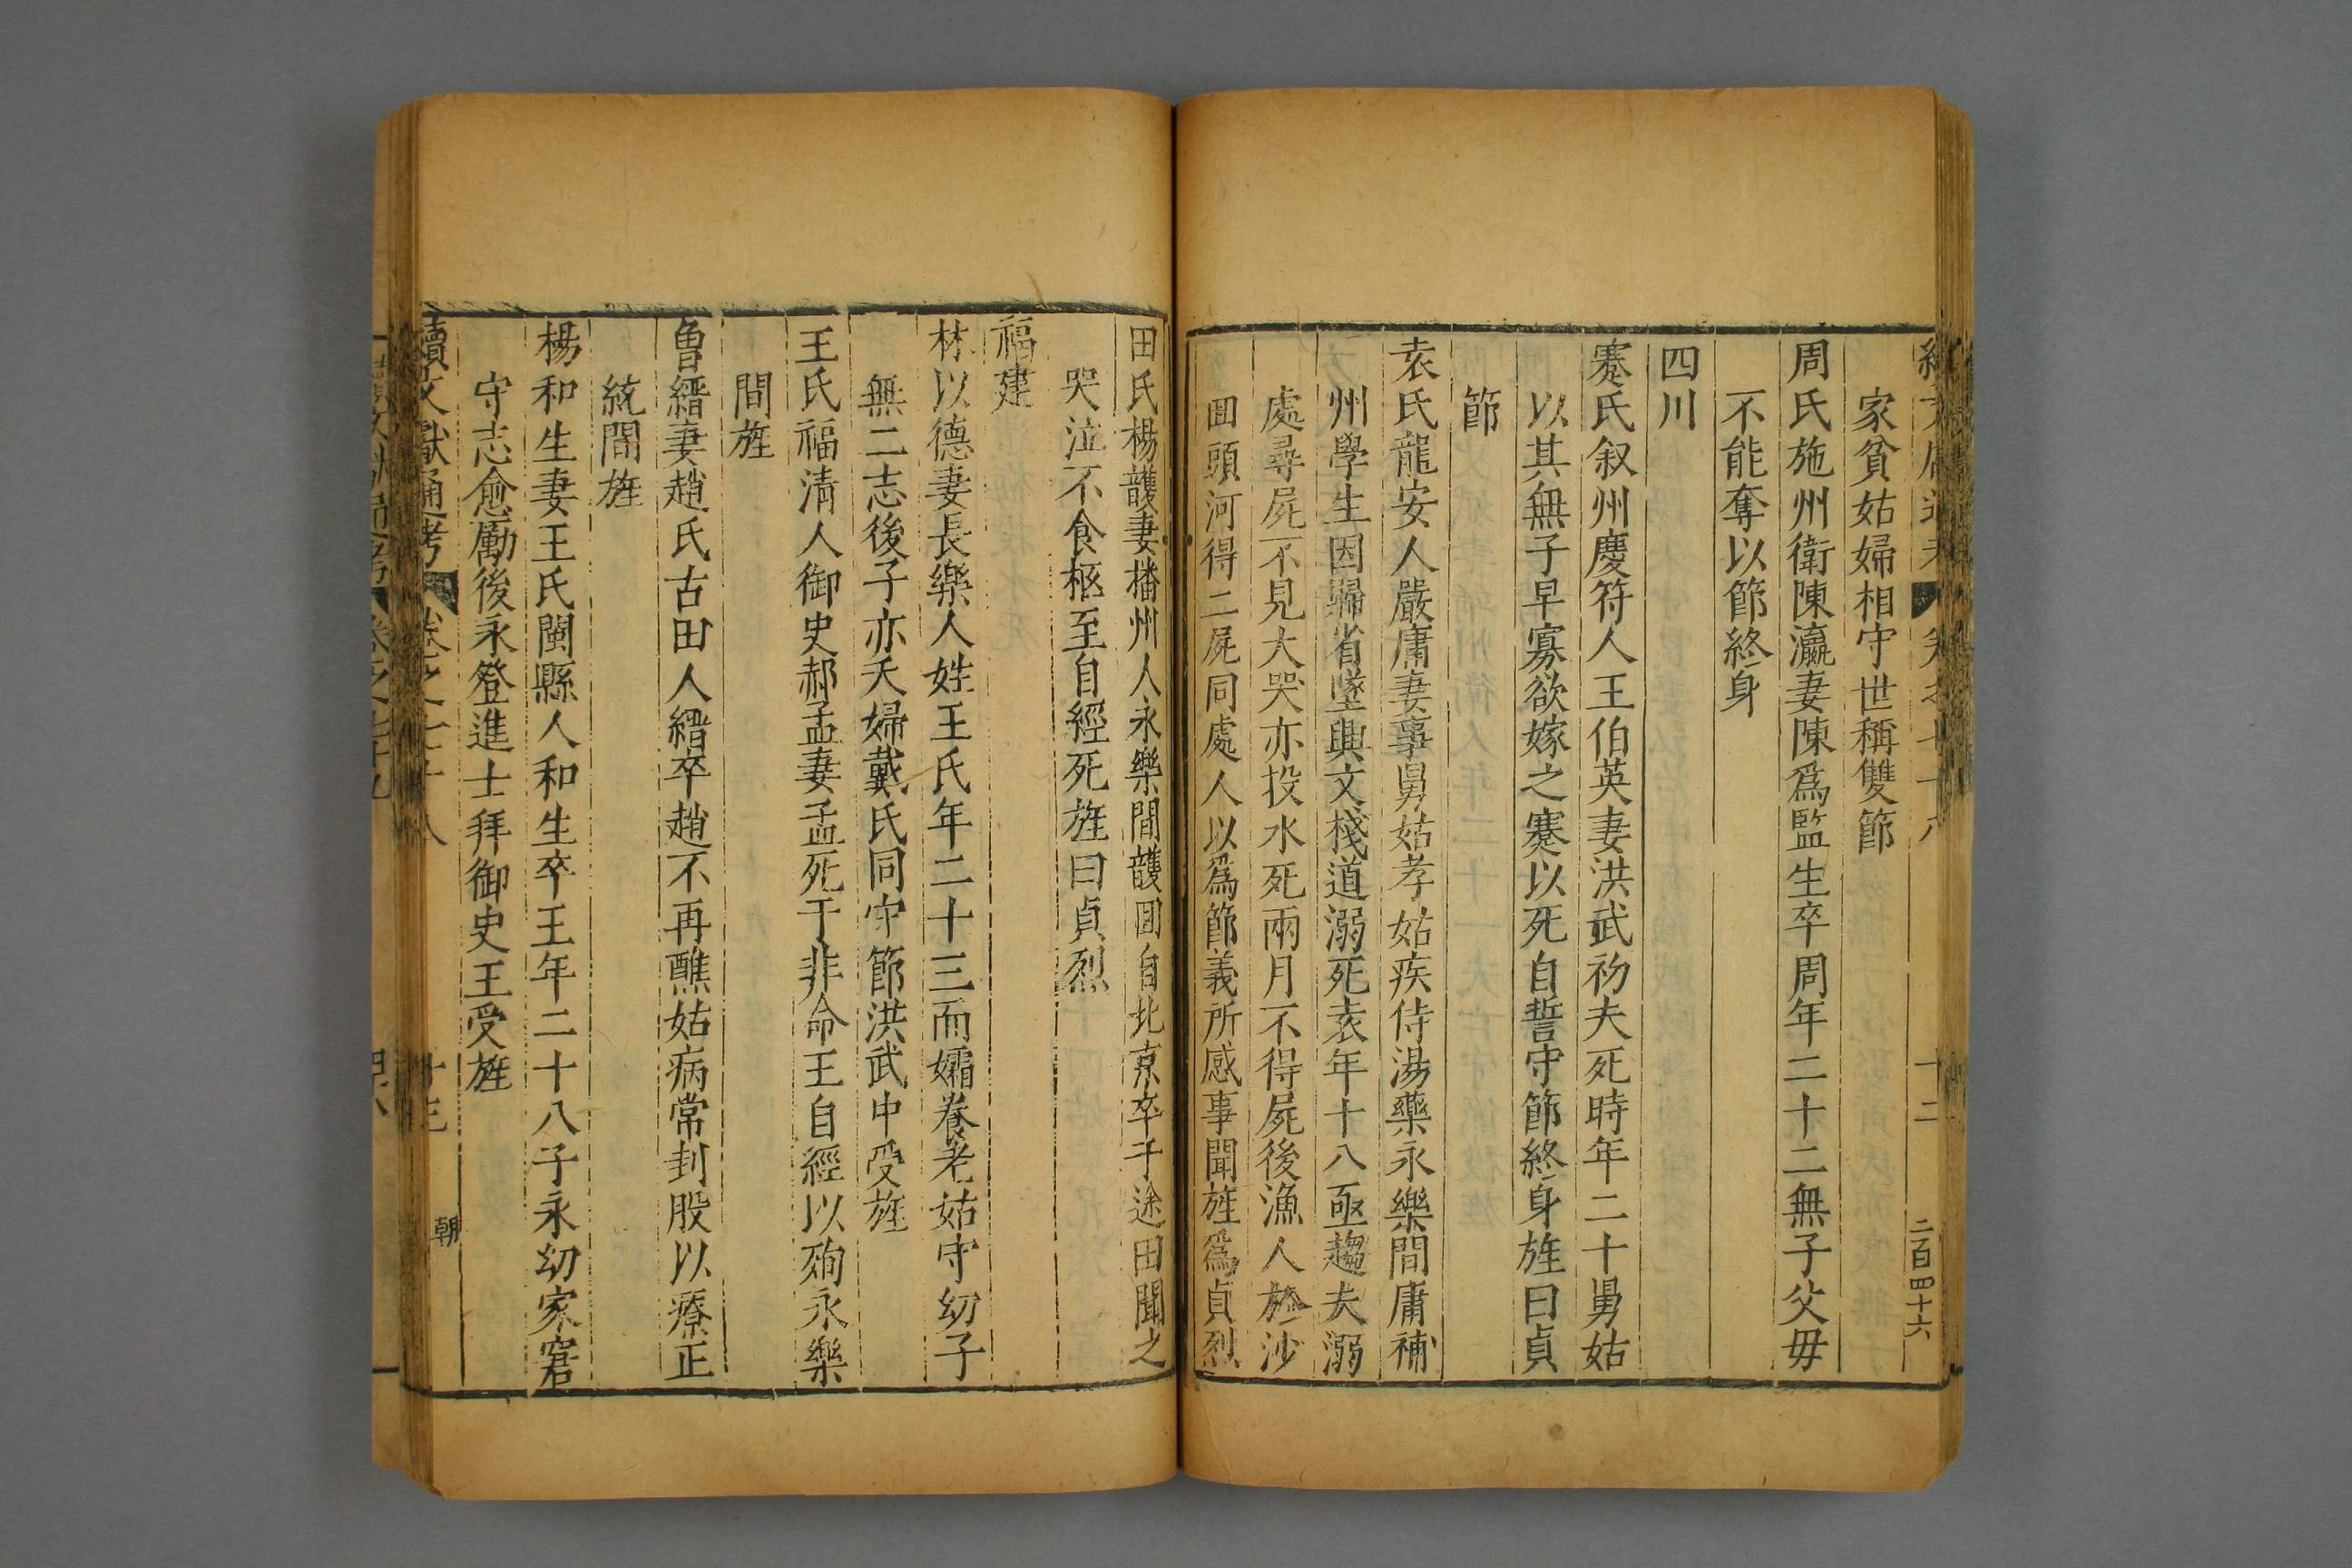 家貧姑婦相守世稱雙節
周氏施州衛陳瀛妻陳爲監生卒周年二十二無子父毋
不能奪以節終身
四川
蹇氏叙州慶符人王伯英妻洪武初夫死時年二十舅姑
以其無子早寡欲嫁之蹇以死自誓守節終身旌曰貞
節
袁氏龍安人嚴庸妻事舅姑孝姑疾侍湯藥永樂間庸補
州學生因歸省墜輿文棧道溺死袁年十八亟趨夫溺
處尋屍不見大哭亦投水死兩月不得屍後漁人於沙
回頭河得二屍同處人以爲節義所感事聞旌爲貞烈
二百四十六
田氏楊護妻播州人永樂間護回自北京卒于途田聞之
哭泣不食柩至自經死旌曰貞烈
福建
林以德妻長樂人姓王氏年二十三而孀養老姑守幼子
無二志後子亦夭婦戴氏同守節洪武中受旌
王氏福清人御史郝孟妻孟死于非命王自經以殉永樂
間旌
魯縉妻趙氏古田人縉卒趙不再醮姑病常刲股以療正
統間旌
楊和生妻王氏閩縣人和生卒王年二十八子永幼家窘
守志愈勵後永登進士拜御史王受旌
續文獻通考 卷之七十八
朝